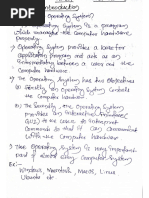 Introduction
Operating System?
Operating System is a program
which manages the Computer hardware
Operating System provides a base for
application program and act as an
intermediary between a user and the
Computer hardware
The Operating System has two objectives
Firstly, an Operating System controls
the Computer hardware
The Secondly, the Operating System
provides an interactive interface
(GUI) to the user to interpret
Commands so that it can communicate
with the Computer hardware
The Operating System is very important
part of almost every Computer System
Ex:-
Windows, Macintosh, MacOS, Linux
Ubuntu etc